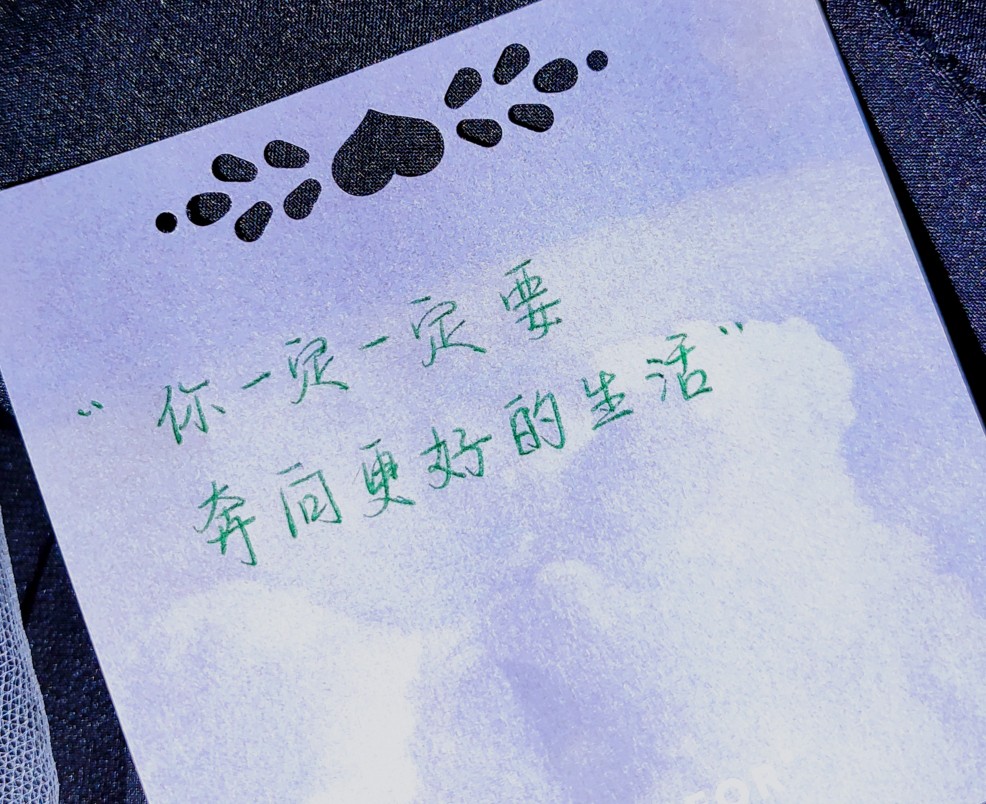 “你一定一定要
奔向更好的生活”
FOR